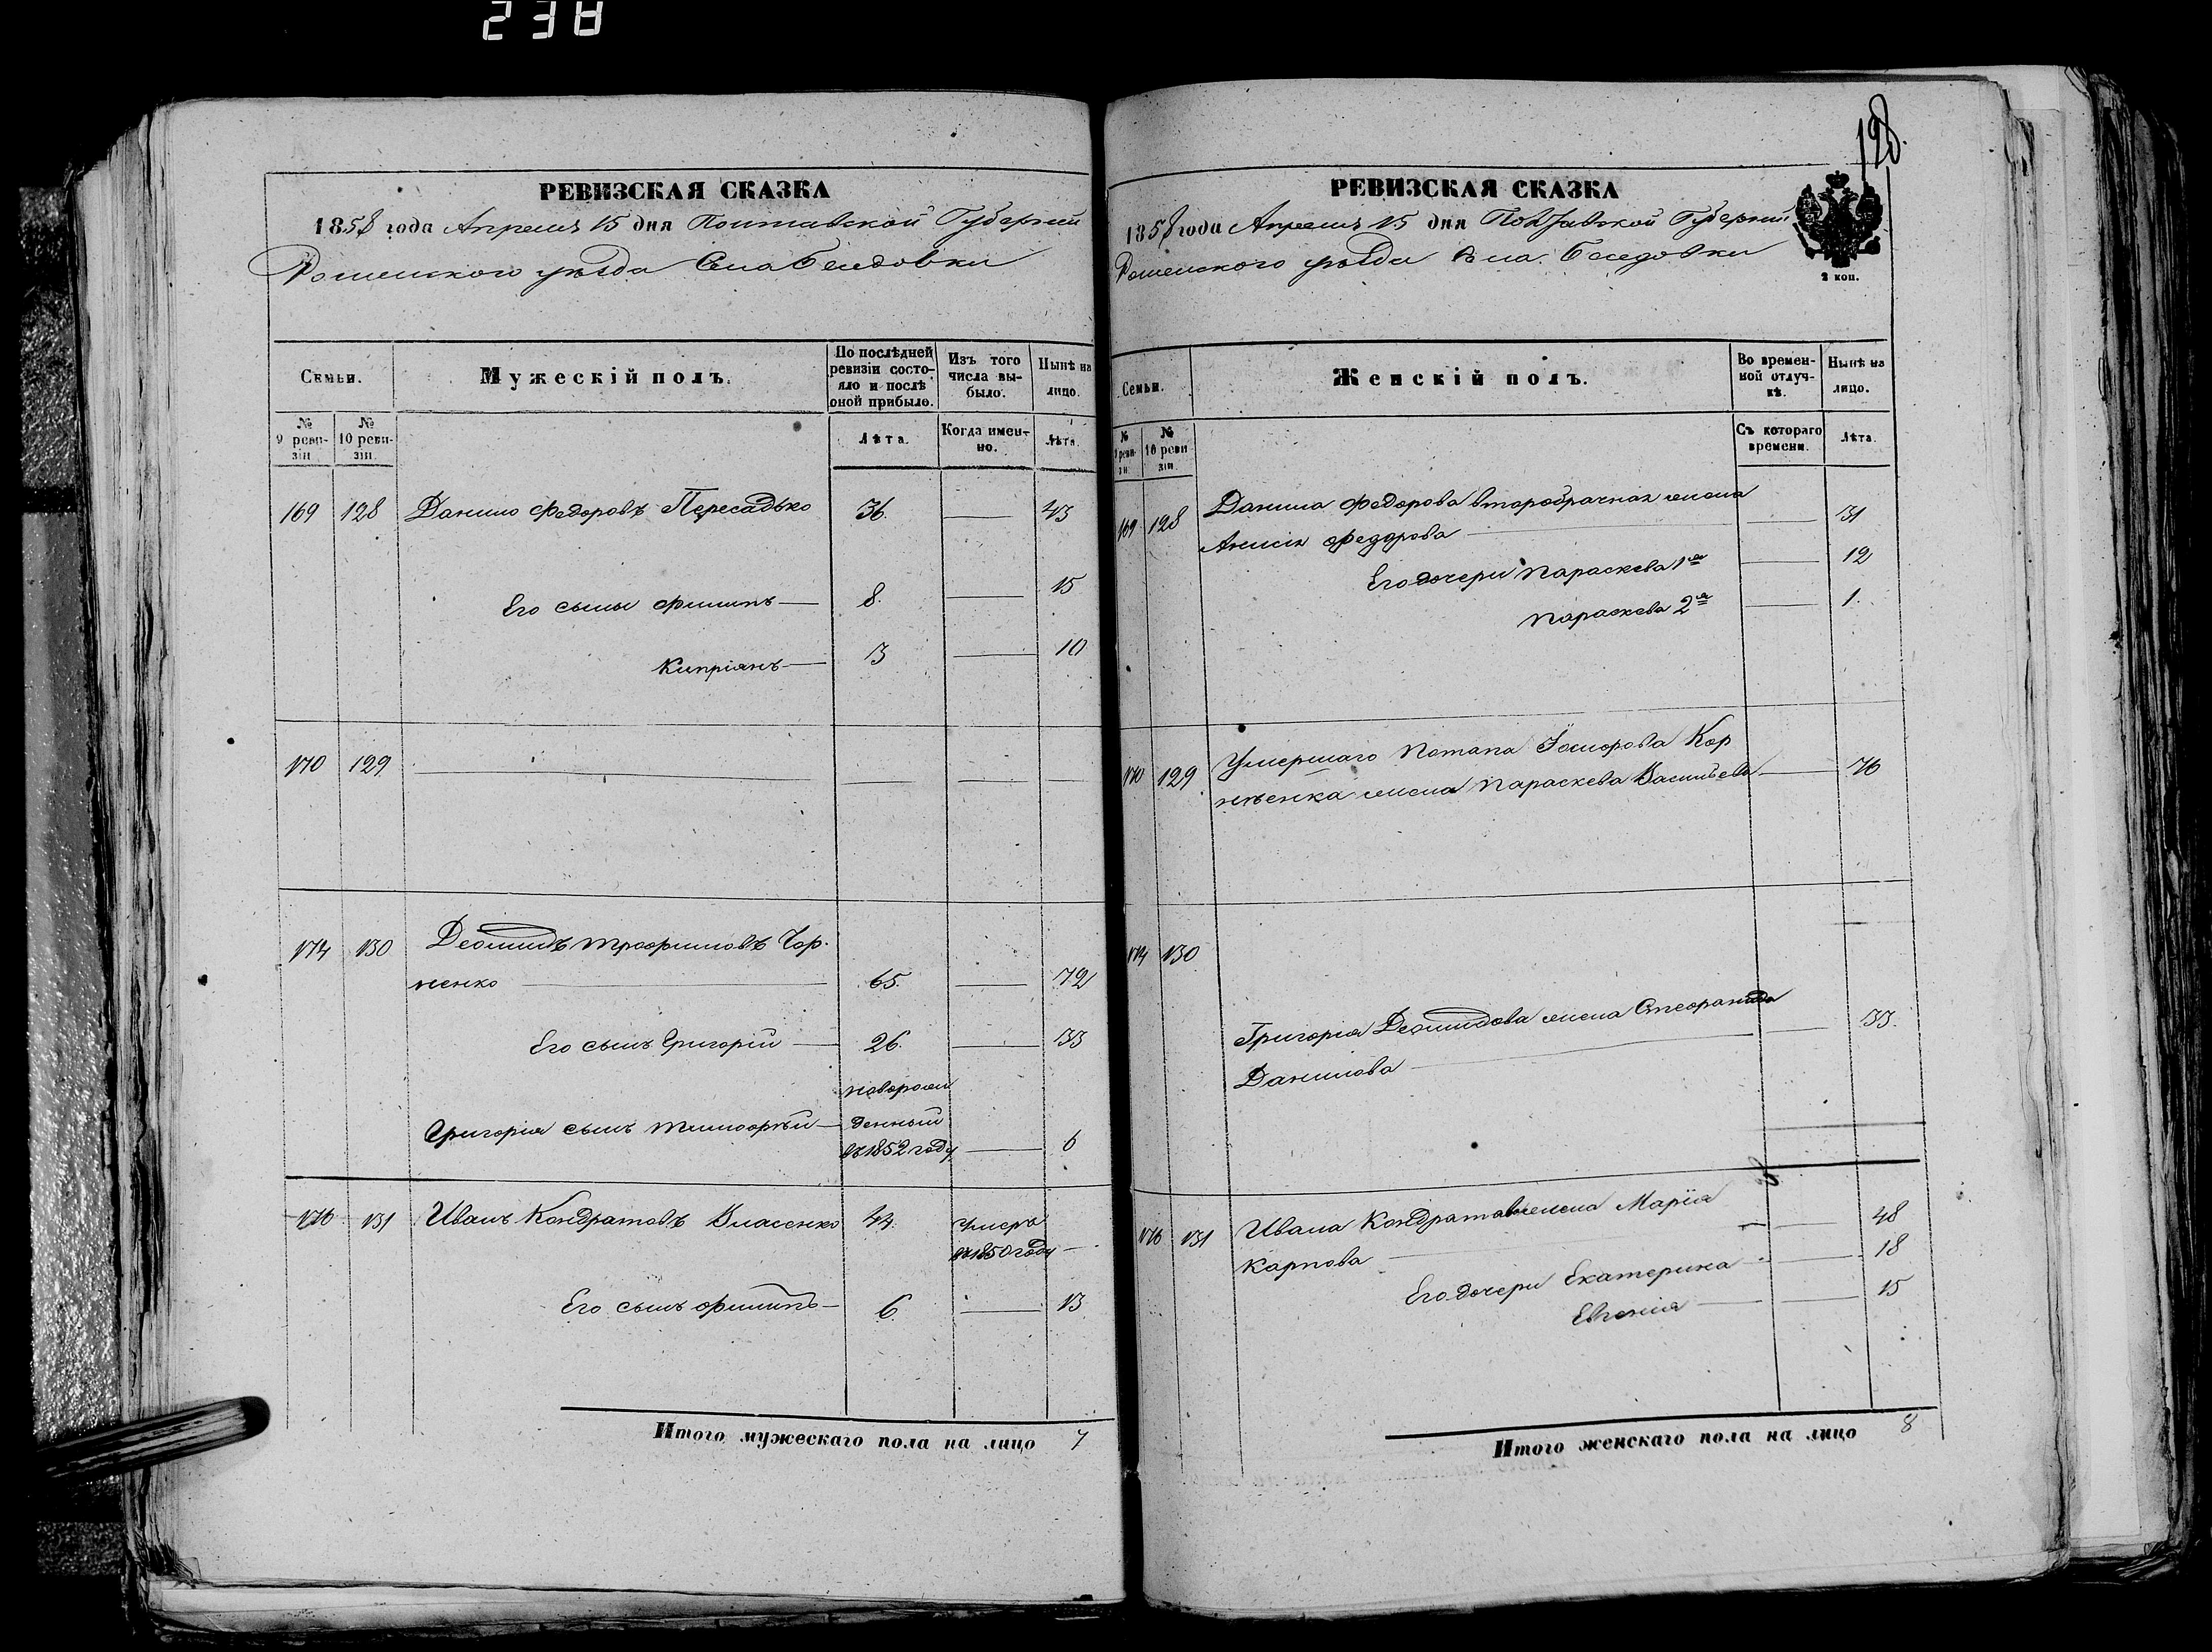 238
РЕВИЗСКАЯ СКАЗКА
1858 года Апреля 15 дня Полтавской Губернии
Роменского уѣзда Села Беседовки
Семьи.
Мужескій полъ.
По послѣдней ревизіи состояло и послѣ оной прибыло.
Изъ того числа выбыло.
Нынѣ на лицо.
№ 9 ревизіи
№ 10 ревизіи.
Лѣта.
Когда именно.
Лѣта.
169 128 Данило Федоровъ Пересадько 36. 43
Его сыны Филипъ 8. 15
Кипріянъ 3 10
170 129
174 130 Деомидъ Трофимовъ Чор-
ненко 65. 72
Его сынъ Григорій 26. 33
новорож
Григорія сынъ Тимофѣй денный
въ 1852 году 6
176 131 Иванъ Кондратовъ Власенко 44. умеръ
въ 1850 году
Его сынъ Филипъ 6. 13
Итого мужескаго пола на лицо 7
198.
РЕВИЗСКАЯ СКАЗКА
1858 года Апреля 15 дня Полтавской Губерніи
Роменского уѣзда Села Беседовки
2 коп.
Семьи.
Женскій полъ.
Во временной отлучкѣ.
Нынѣ на лицо.
№ 9 ревизіи
№ 10 ревизіи
Съ котораго времени.
Лѣта.
169 128 Данила Федорова второбрачная жена
Анисія Федорова 31
Его дочери Параскева 1я 12
Параскева 2я 1.
170 129 Умершаго Потапа Кор
нѣенка жена Параскева Васильева 76
174 130
Григорія Деомидова жена Стефанида
Данилова 33.
176 131 Ивана Кондратова жена Марія
Карпова 48
Его дочери Екатерина 18
Евгенія 15
Итого женскаго пола на лицо 8